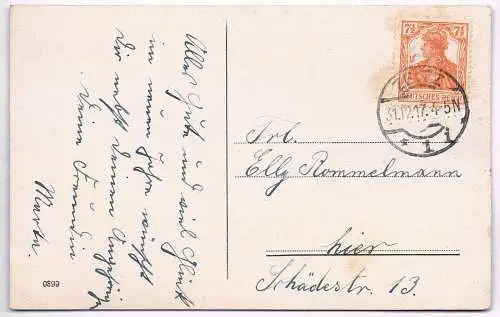 Alles Gute und viel Glück
im neuen Jahre wünscht
Dir nebst Deinen Angehörigen
Deine Freundin
Marta.
0899
7½ 7½
DEUTSCHES REICH
31.12.17. 4-5N
* 1 i
Frl.
Elly Rommelmann
hier
Schädestr. 13.